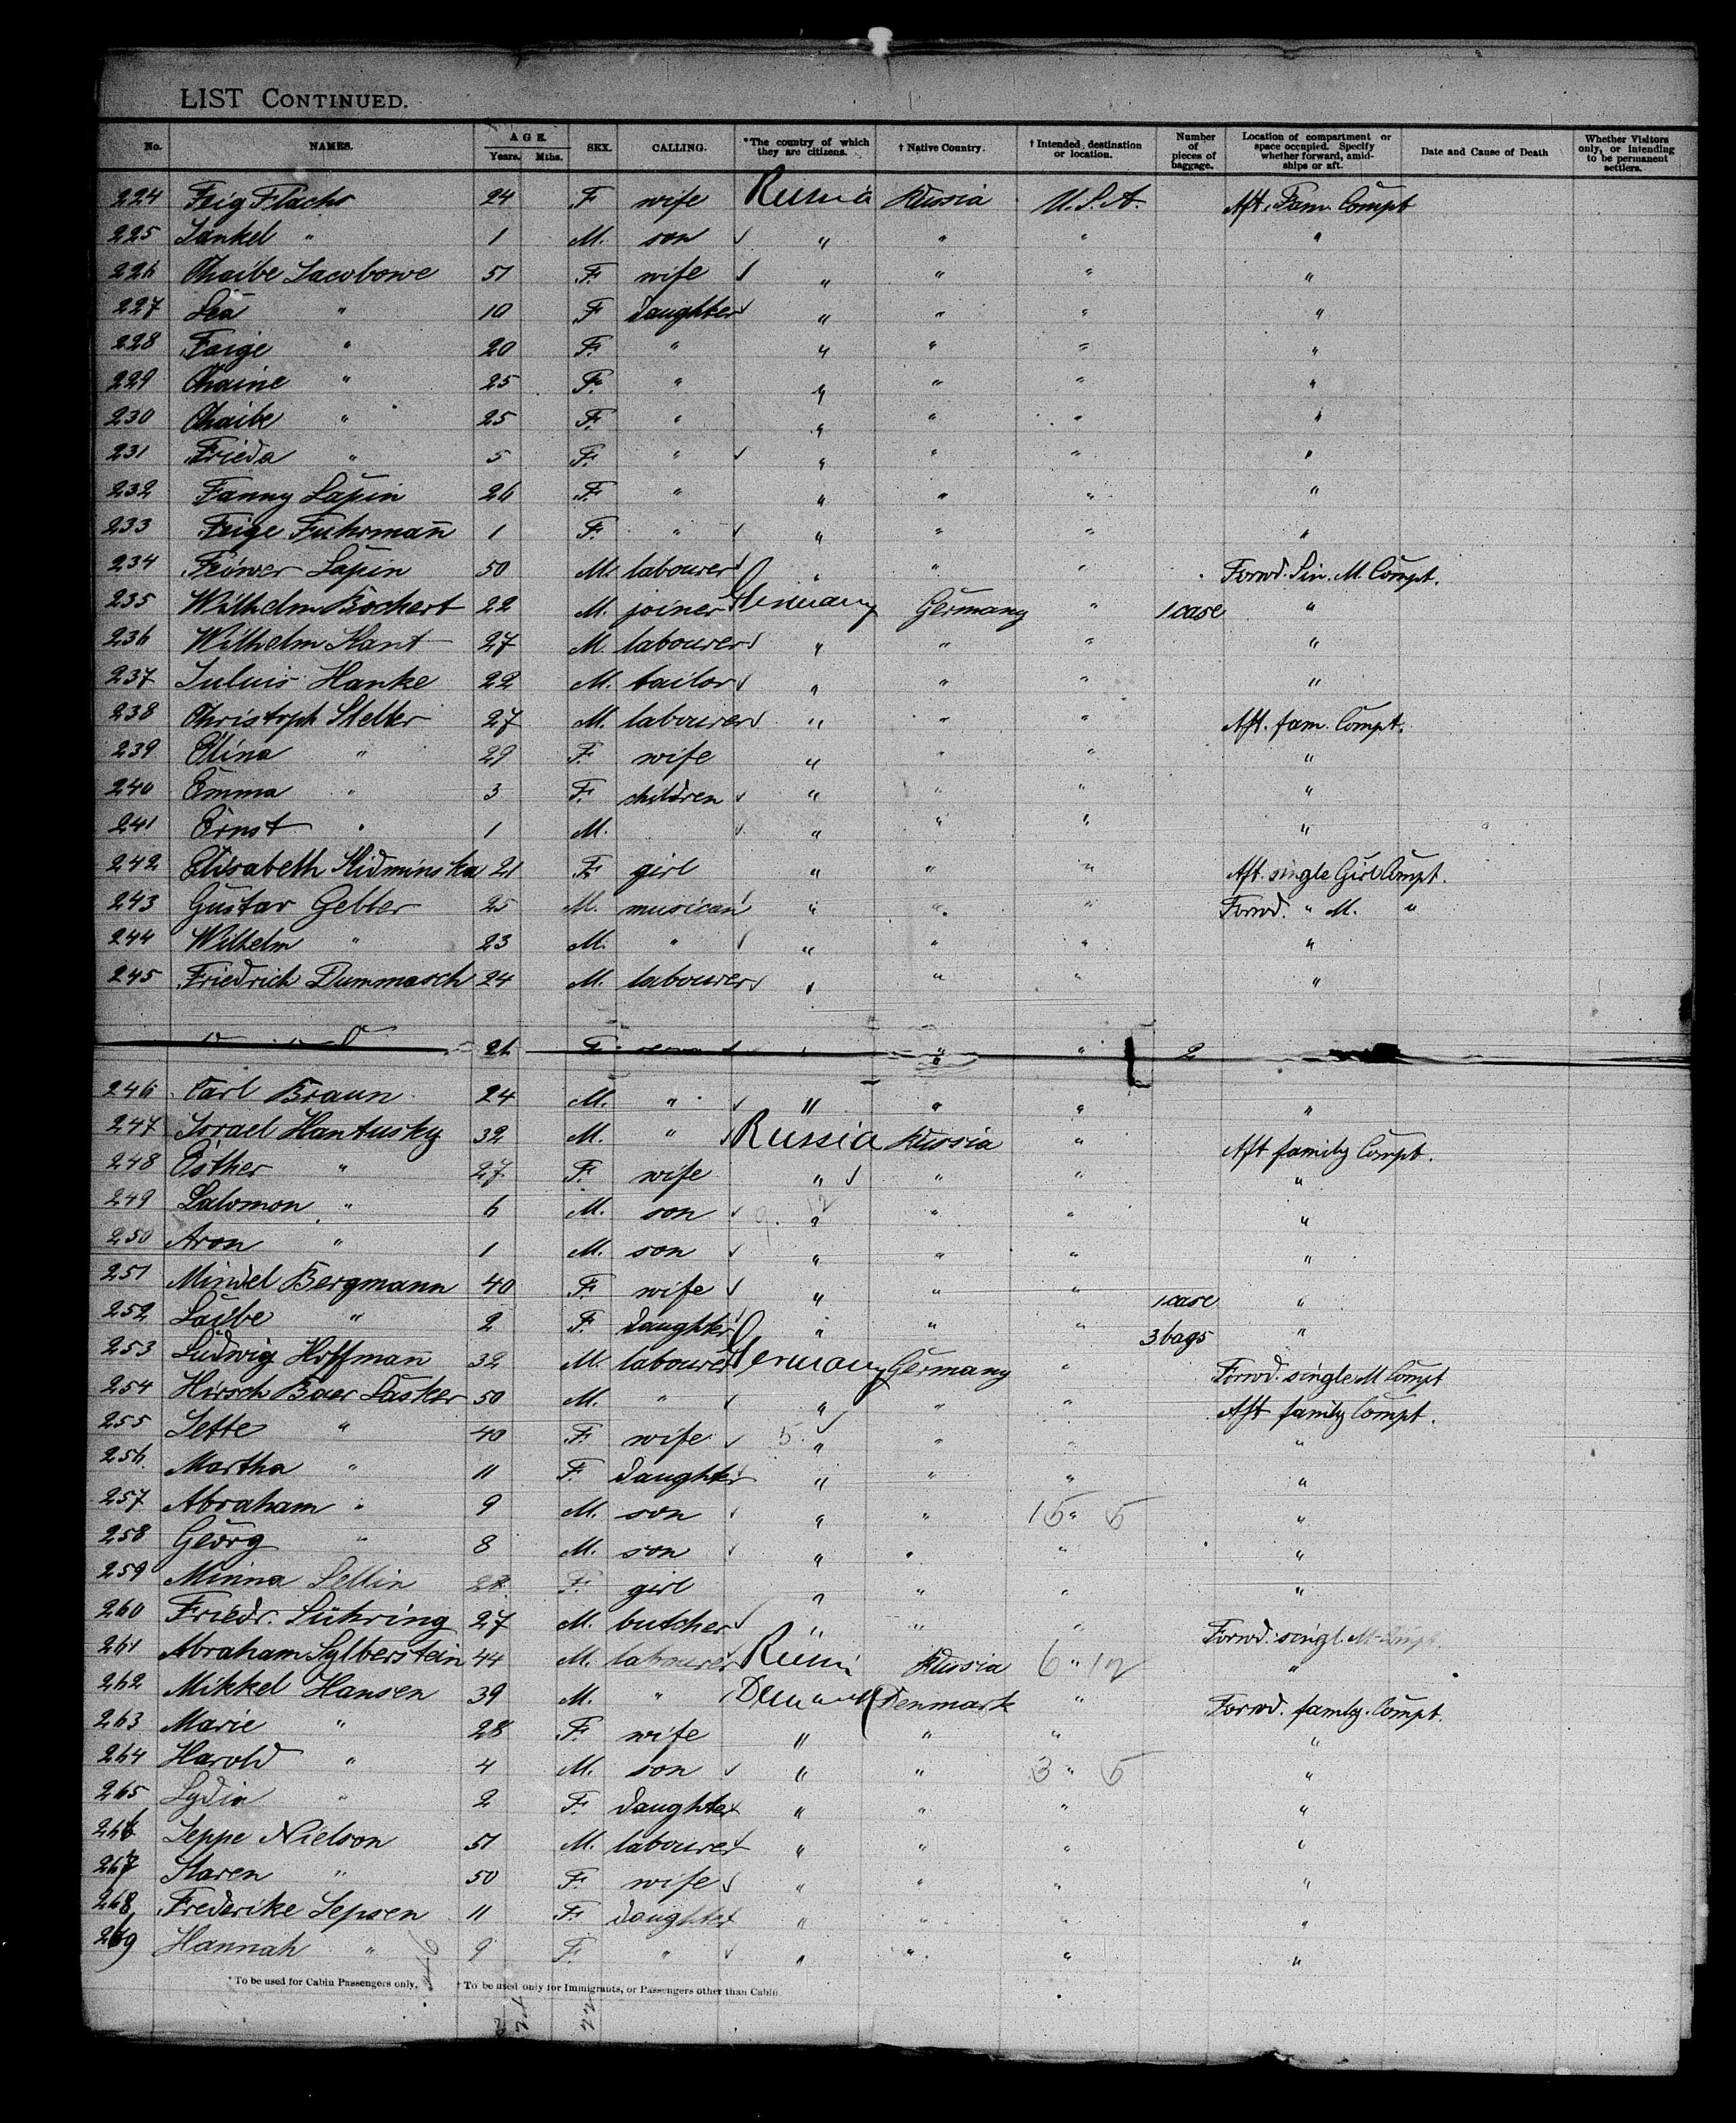 LIST CONTINUED.
No. NAMES. AGE. Years. Mths. SEX. CALLING. *The country of which they are citizens. † Native Country. † Intended destination or location. Number of pieces of baggage. Location of compartment or space occupied. Specify whether forward, amidships or aft. Date and Cause of Death Whether Visitors only, or intending to be permanent settlers.
224 Feig Flachs 24 F wife Russia Russia U.S.A. Aft. Fam. Compt
225 Jankel " 1 M. son " " " "
226 Chaibe Jacobowe 51 F. wife " " " "
227 Lea " 10 F daughter " " " "
228 Faige " 20 F. " " " " "
229 Chaine " 25 F. " " " " "
230 Chaibe " 25 F. " " " " "
231 Frieda " 5 F. " " " " "
232 Fanny Lapin 26 F " " " " "
233 Feige Fuhrmann 1 F. " " " " "
234 Lapin 50 M. labourer " " " Forwd. Sin. M. Compt.
235 Wilhelm Bockert 22 M. joiner Germany Germany " 1 case "
236 Wilhelm Kant 27 M. labourer " " " "
237 Julius Hanke 22 M. tailor " " " "
238 Christoph Steller 27 M. labourer " " " Aft. fam. Compt.
239 Elina " 29 F. wife " " " "
240 Emma " 3 F. children " " " "
241 Ernst " 1 M. " " " "
242 Elisabeth Skidminska 21 F girl " " " Aft. single Girl Compt.
243 Gustav Gebler 25 M. musican " " " Forwd. " M. "
244 Wilhelm " 23 M. " " " " "
245 Friedrich Dummasch 24 M. labourer " " " "
26 F. " " 2
246 Carl Braun 24 M. " " " " "
247 Israel Hantusky 32 M. " Russia Russia " Aft family Compt.
248 Esther " 27 F. wife " " " "
249 Salomon " 6 M. son " " " "
250 Aron " 1 M. son " " " "
251 Mindel Bergmann 40 F. wife " " " 1 case "
252 Laibe " 2 F. daughter " " " 3 bags "
253 Ludwig Hoffmann 32 M. labourer Germany Germany " Forwd. single M Compt
254 Hirsch Baer Lasker 50 M. " " " " Aft family Compt.
255 Jette " 40 F. wife 5 " " " "
256 Martha " 11 F. daughter " " " "
257 Abraham " 9 M. son " " 15 " 5 "
258 Georg " 8 M. son " " " "
259 Minna Sellin F. girl " " " "
260 Friedr. Lühring 27 M. butcher " " " Forwd. singl. M Compt
261 Abraham Sylberstein 44 M. labourer Russi Russia 6 " 12 "
262 Mikkel Hansen 39 M. " Denmark Denmark " Forwd. family. Compt.
263 Marie " 28 F. wife " " " "
264 Harold " 4 M. son " " 3 " 5 "
265 Lydia " 2 F. daughter " " " "
266 Jeppe Nielson 51 M. labourer " " " "
267 Karen " 50 F. wife " " " "
268 Frederike Jepsen 11 F. daughter " " " "
269 Hannah " 9 F. " " " " "
*To be used for Cabin Passengers only. † To be used only for Immigrants, or Passengers other than Cabin.